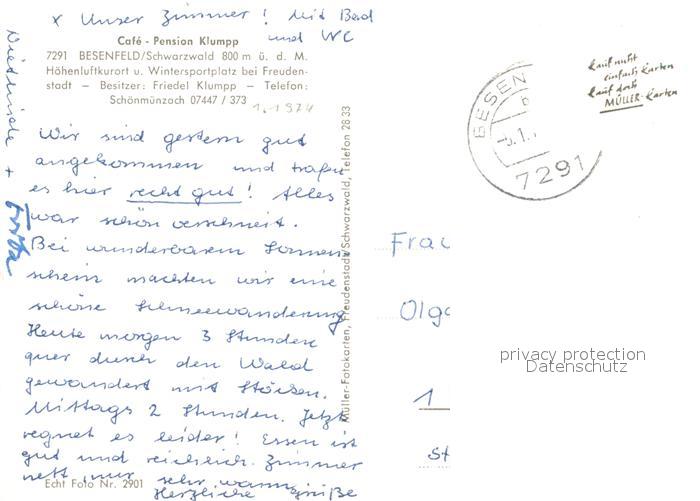 x Unser Zimmer! Mit Bad
und WC
Café - Pension Klumpp
7291 BESENFELD/Schwarzwald 800 m ü. d. M.
Höhenluftkurort u. Wintersportplatz bei Freuden-
stadt — Besitzer: Friedel Klumpp — Telefon:
Schönmünzach 07447 / 373
1.1974
Wir sind gestern gut
angekommen und trafen
es hier recht gut! Alles
war schön verschneit.
Bei wunderbarem Sonnen
schein machten wir eine
schöne Schneewanderung
Heute morgen 3 Stunden
quer durch den Wald
gewandert mit Stöcken.
Mittags 2 Stunden. Jetzt
regnet es leider! Essen ist
gut und reichlich. Zimmer
nett, nur sehr warm
Herzliche Grüße
Echt Foto Nr. 2901
Müller-Fotokarten, Freudenstadt/Schwarzwald, Telefon 28 33
BESEN
7291
Kauf nicht
einfach Karten
kauf doch
MÜLLER-Karten
Frau
Olga
1
St
privacy protection
Datenschutz